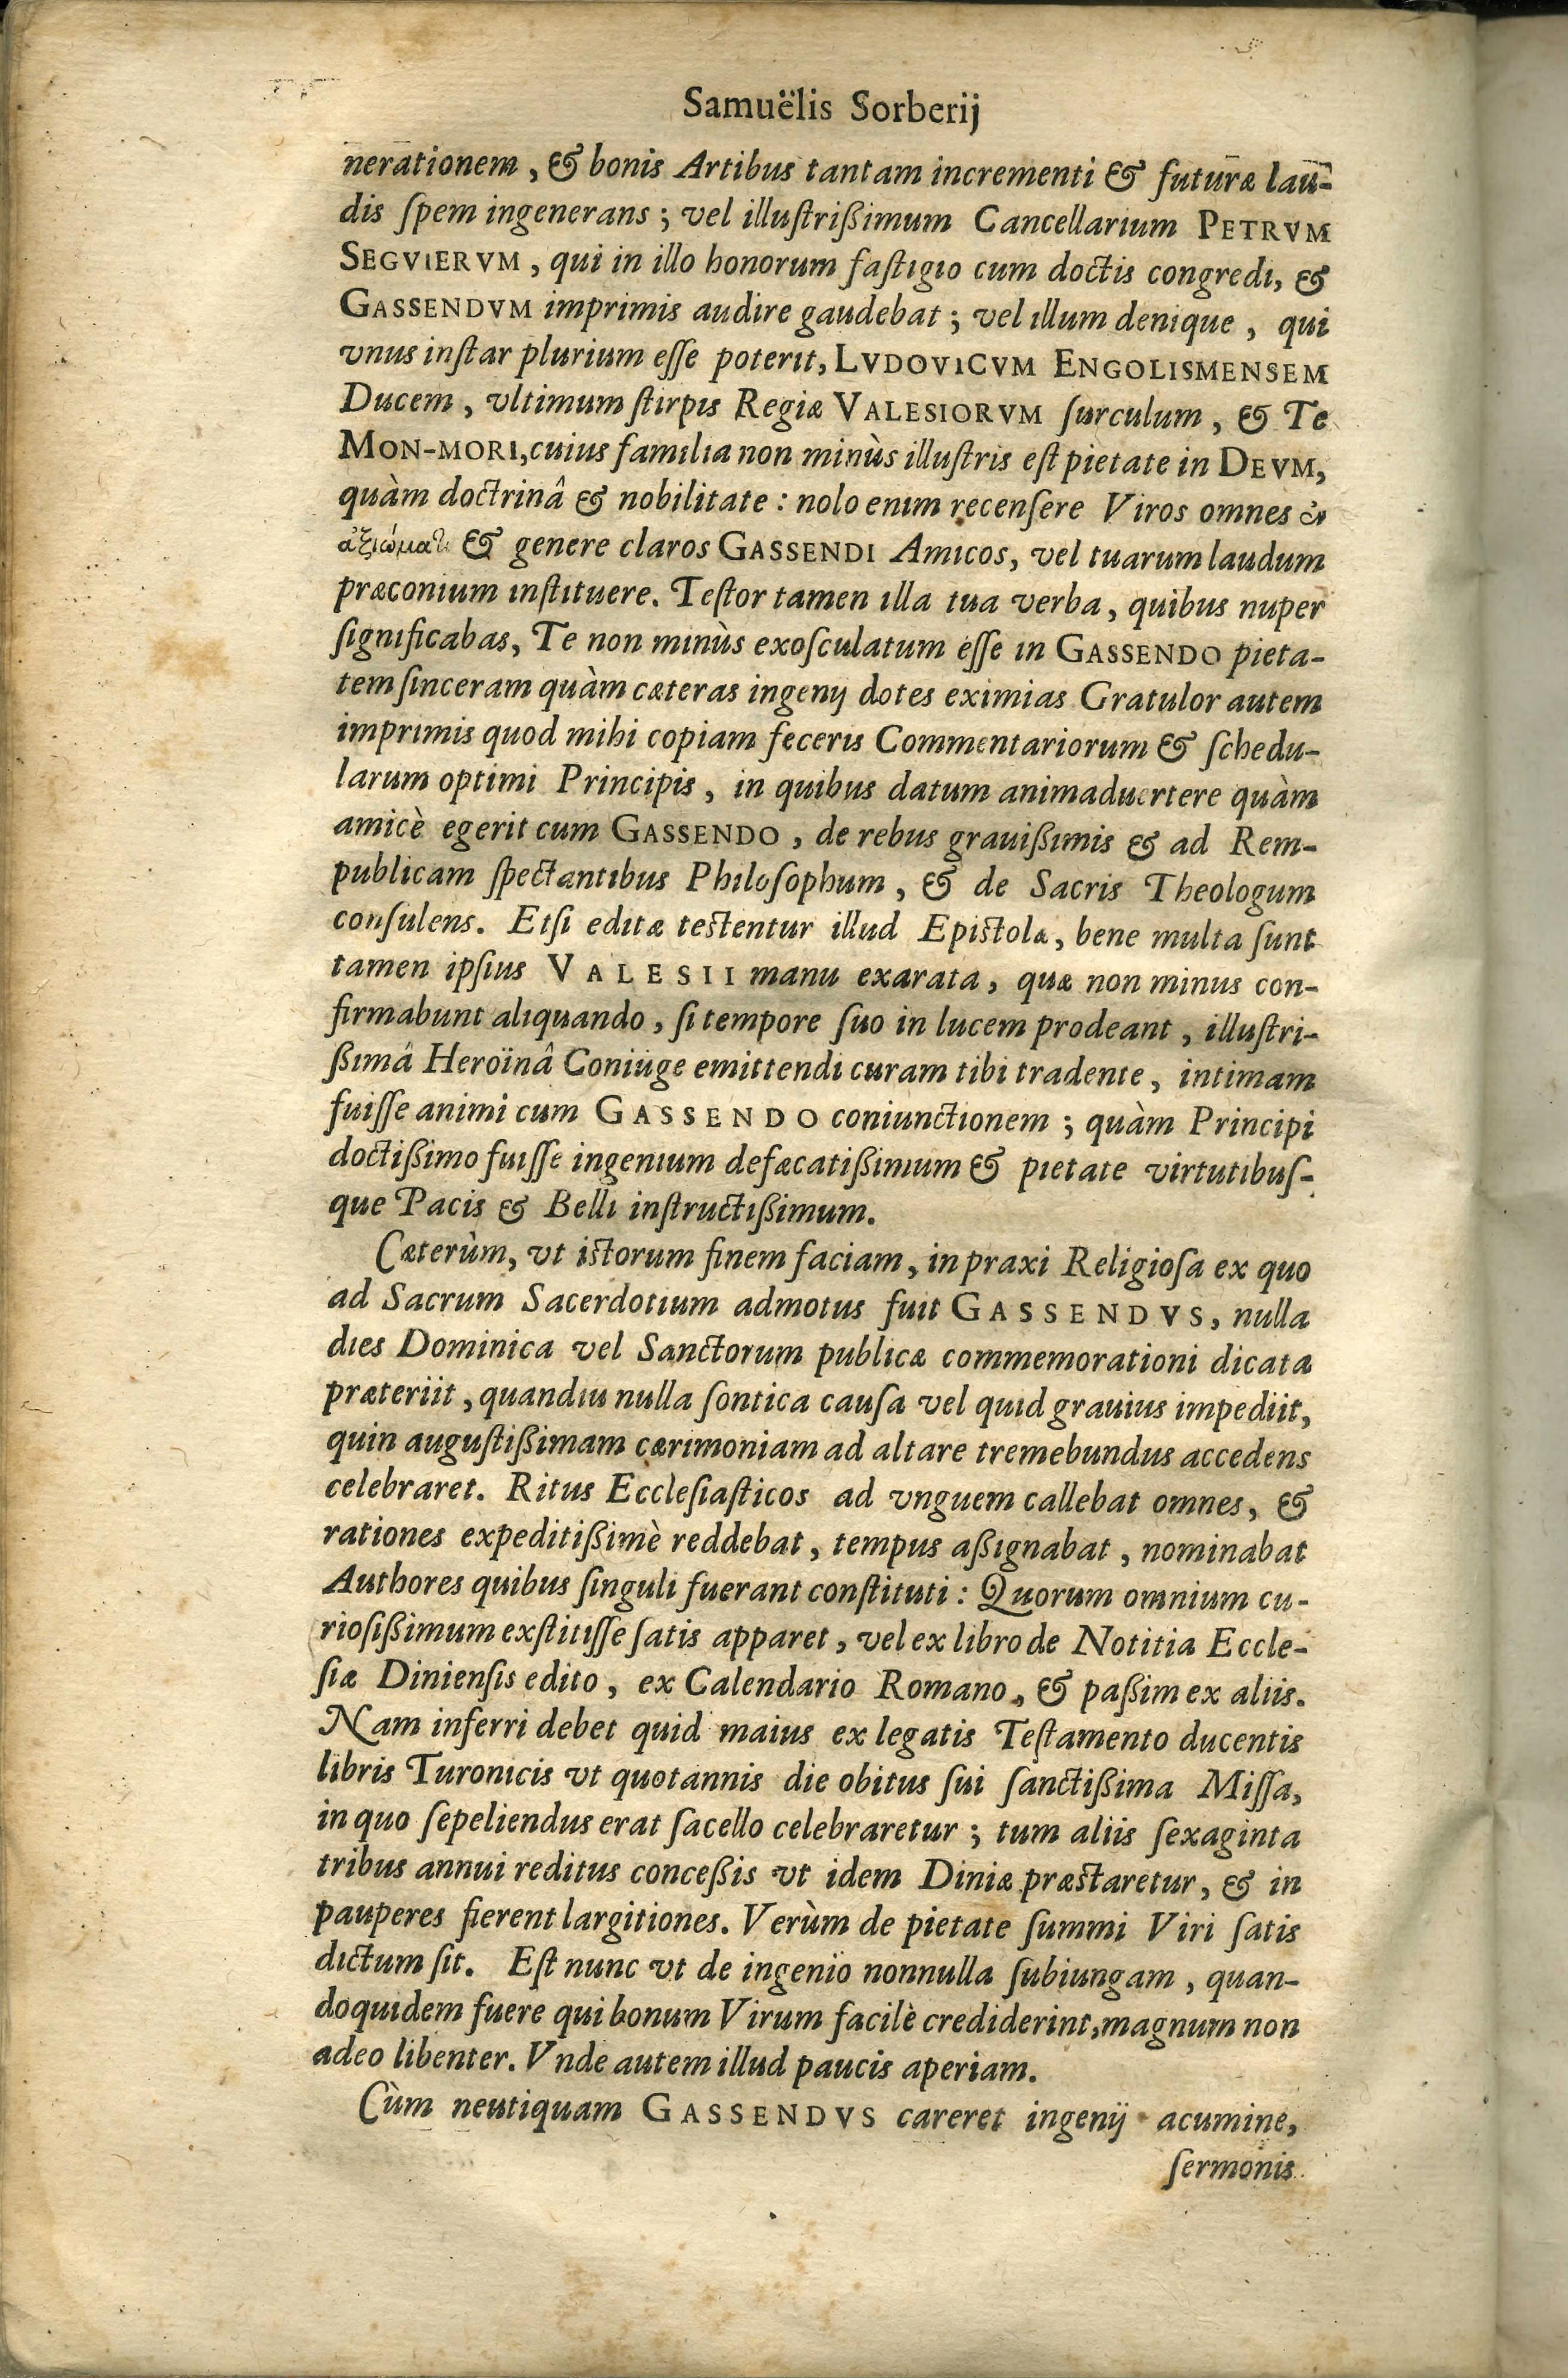 Samuëlis Sorberij
nerationem, & bonis Artibus tantam incrementi & futuræ lau-
dis ſpem ingenerans; vel illuſtrißimum Cancellarium PETRVM
SEGVIERVM, qui in illo honorum faſtigio cum doctis congredi, &
GASSENDVM imprimis audire gaudebat; vel illum denique, qui
vnus inſtar plurium eſſe poterit, LVDOVICVM ENGOLISMENSEM
Ducem, vltimum ſtirpis Regiæ VALESIORVM ſurculum, & Te
MON-MORI, cuius familia non minùs illuſtris eſt pietate in DEVM,
quàm doctrinâ & nobilitate: nolo enim recenſere Viros omnes ἐν
ἀξιώματι & genere claros GASSENDI Amicos, vel tuarum laudum
præconium inſtituere. Teſtor tamen illa tua verba, quibus nuper
ſignificabas, Te non minùs exoſculatum eſſe in GASSENDO pieta-
tem ſinceram quàm cæteras ingenij dotes eximias Gratulor autem
imprimis quod mihi copiam feceris Commentariorum & ſchedu-
larum optimi Principis, in quibus datum animaduertere quàm
amicè egerit cum GASSENDO, de rebus grauißimis & ad Rem-
publicam ſpectantibus Philoſophum, & de Sacris Theologum
conſulens. Etſi editæ teſtentur illud Epiſtolæ, bene multa ſunt
tamen ipſius VALESII manu exarata, quæ non minus con-
firmabunt aliquando, ſi tempore ſuo in lucem prodeant, illuſtri-
ßimâ Heroïnâ Coniuge emittendi curam tibi tradente, intimam
fuiſſe animi cum GASSENDO coniunctionem; quàm Principi
doctißimo fuiſſe ingenium defæcatißimum & pietate virtutibuſ-
que Pacis & Belli inſtructißimum.
Cæterùm, vt iſtorum finem faciam, in praxi Religioſa ex quo
ad Sacrum Sacerdotium admotus fuit GASSENDVS, nulla
dies Dominica vel Sanctorum publicæ commemorationi dicata
præteriit, quandiu nulla ſontica cauſa vel quid grauius impediit,
quin auguſtißimam cærimoniam ad altare tremebundus accedens
celebraret. Ritus Eccleſiaſticos ad vnguem callebat omnes, &
rationes expeditißimè reddebat, tempus aßignabat, nominabat
Authores quibus ſinguli fuerant conſtituti: Quorum omnium cu-
rioſißimum exſtitiſſe ſatis apparet, vel ex libro de Notitia Eccle-
ſiæ Dinienſis edito, ex Calendario Romano, & paßim ex aliis.
Nam inferri debet quid maius ex legatis Teſtamento ducentis
libris Turonicis vt quotannis die obitus ſui ſanctißima Miſſa,
in quo ſepeliendus erat ſacello celebraretur; tum aliis ſexaginta
tribus annui reditus conceßis vt idem Diniæ præſtaretur, & in
pauperes fierent largitiones. Verùm de pietate ſummi Viri ſatis
dictum ſit. Eſt nunc vt de ingenio nonnulla ſubiungam, quan-
doquidem fuere qui bonum Virum facilè crediderint, magnum non
adeo libenter. Vnde autem illud paucis aperiam.
Cùm neutiquam GASSENDVS careret ingenij acumine,
ſermonis